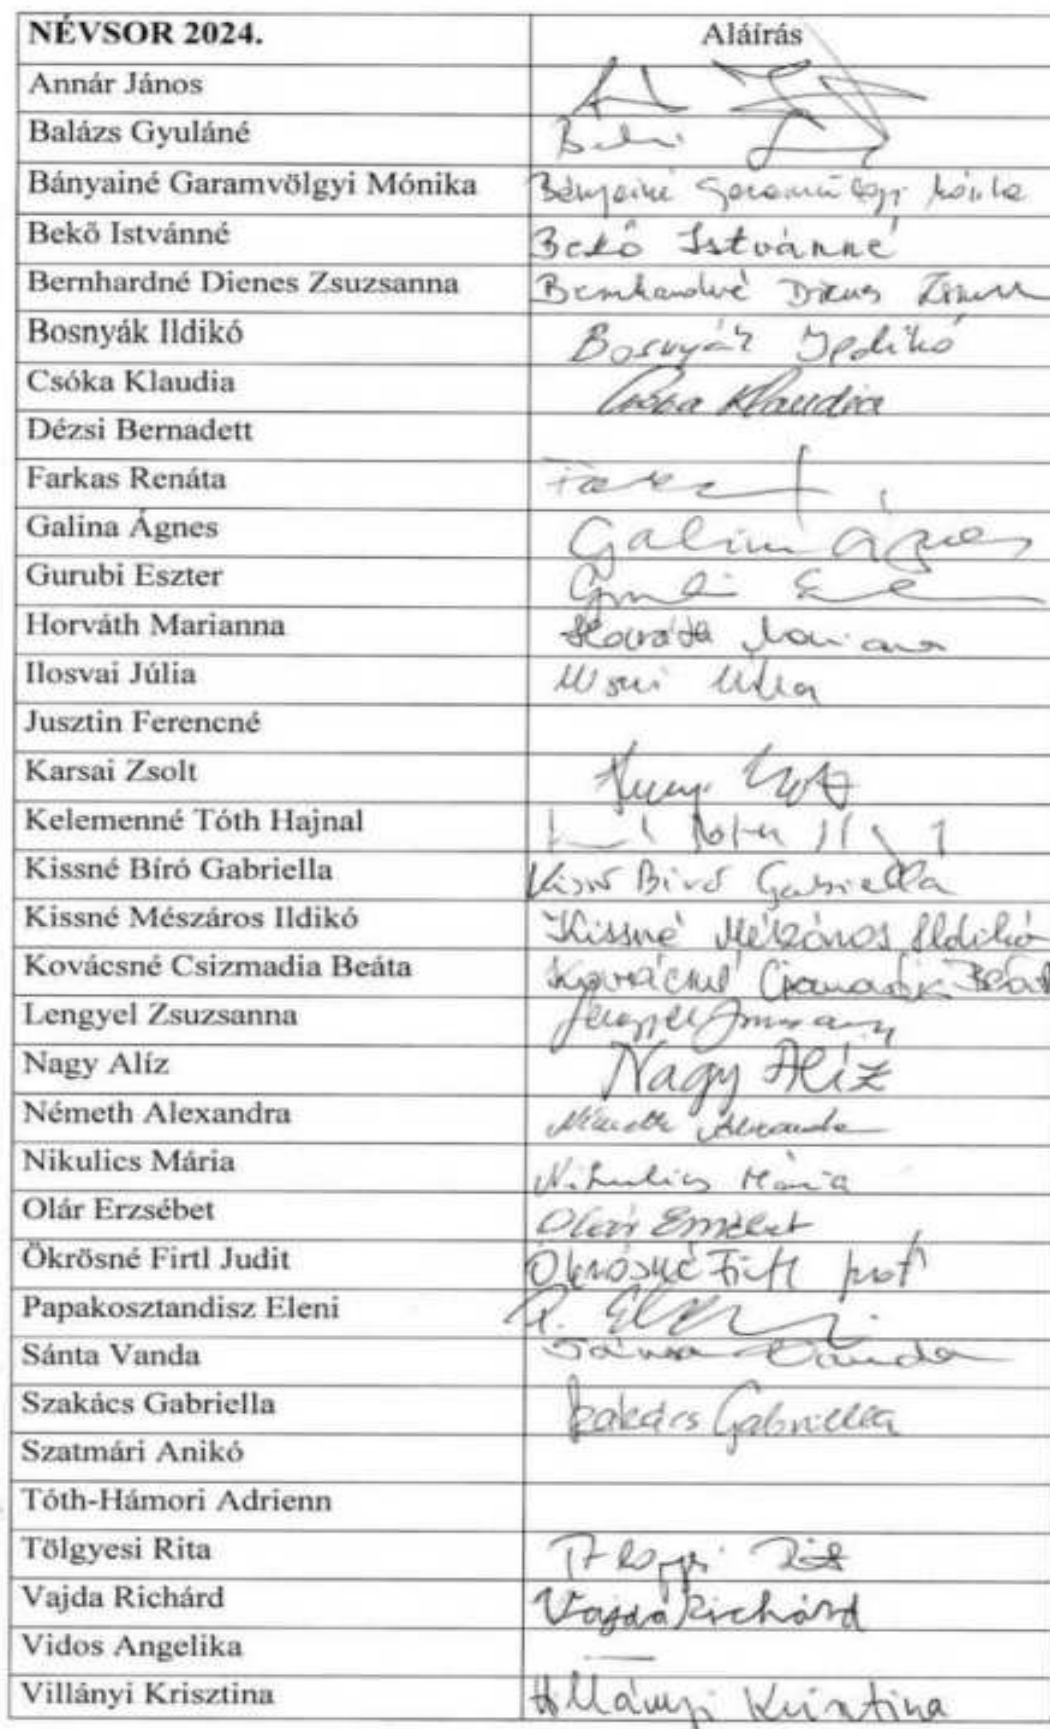 NÉVSOR 2024. Aláírás
Annár János
Balázs Gyuláné
Bányainé Garamvölgyi Mónika Bányainé Garamvölgyi Mónika
Bekő Istvánné Bekő Istvánné
Bernhardné Dienes Zsuzsanna Bernhardné Dienes
Bosnyák Ildikó Bosnyák Ildikó
Csóka Klaudia Csóka Klaudia
Dézsi Bernadett
Farkas Renáta
Galina Ágnes Galina Ágnes
Gurubi Eszter
Horváth Marianna Horváth Marianna
Ilosvai Júlia
Jusztin Ferencné
Karsai Zsolt
Kelemenné Tóth Hajnal
Kissné Bíró Gabriella Kissné Bíró Gabriella
Kissné Mészáros Ildikó Kissné Mészáros Ildikó
Kovácsné Csizmadia Beáta Kovácsné Csizmadia Beáta
Lengyel Zsuzsanna Lengyel
Nagy Alíz Nagy Alíz
Németh Alexandra Németh Alexandra
Nikulics Mária Nikulics Mária
Olár Erzsébet Olár Erzsébet
Ökrösné Firtl Judit Ökrösné Firtl
Papakosztandisz Eleni P.
Sánta Vanda Sánta Vanda
Szakács Gabriella Szakács Gabriella
Szatmári Anikó
Tóth-Hámori Adrienn
Tölgyesi Rita
Vajda Richárd Vajda Richárd
Vidos Angelika
Villányi Krisztina Villányi Krisztina